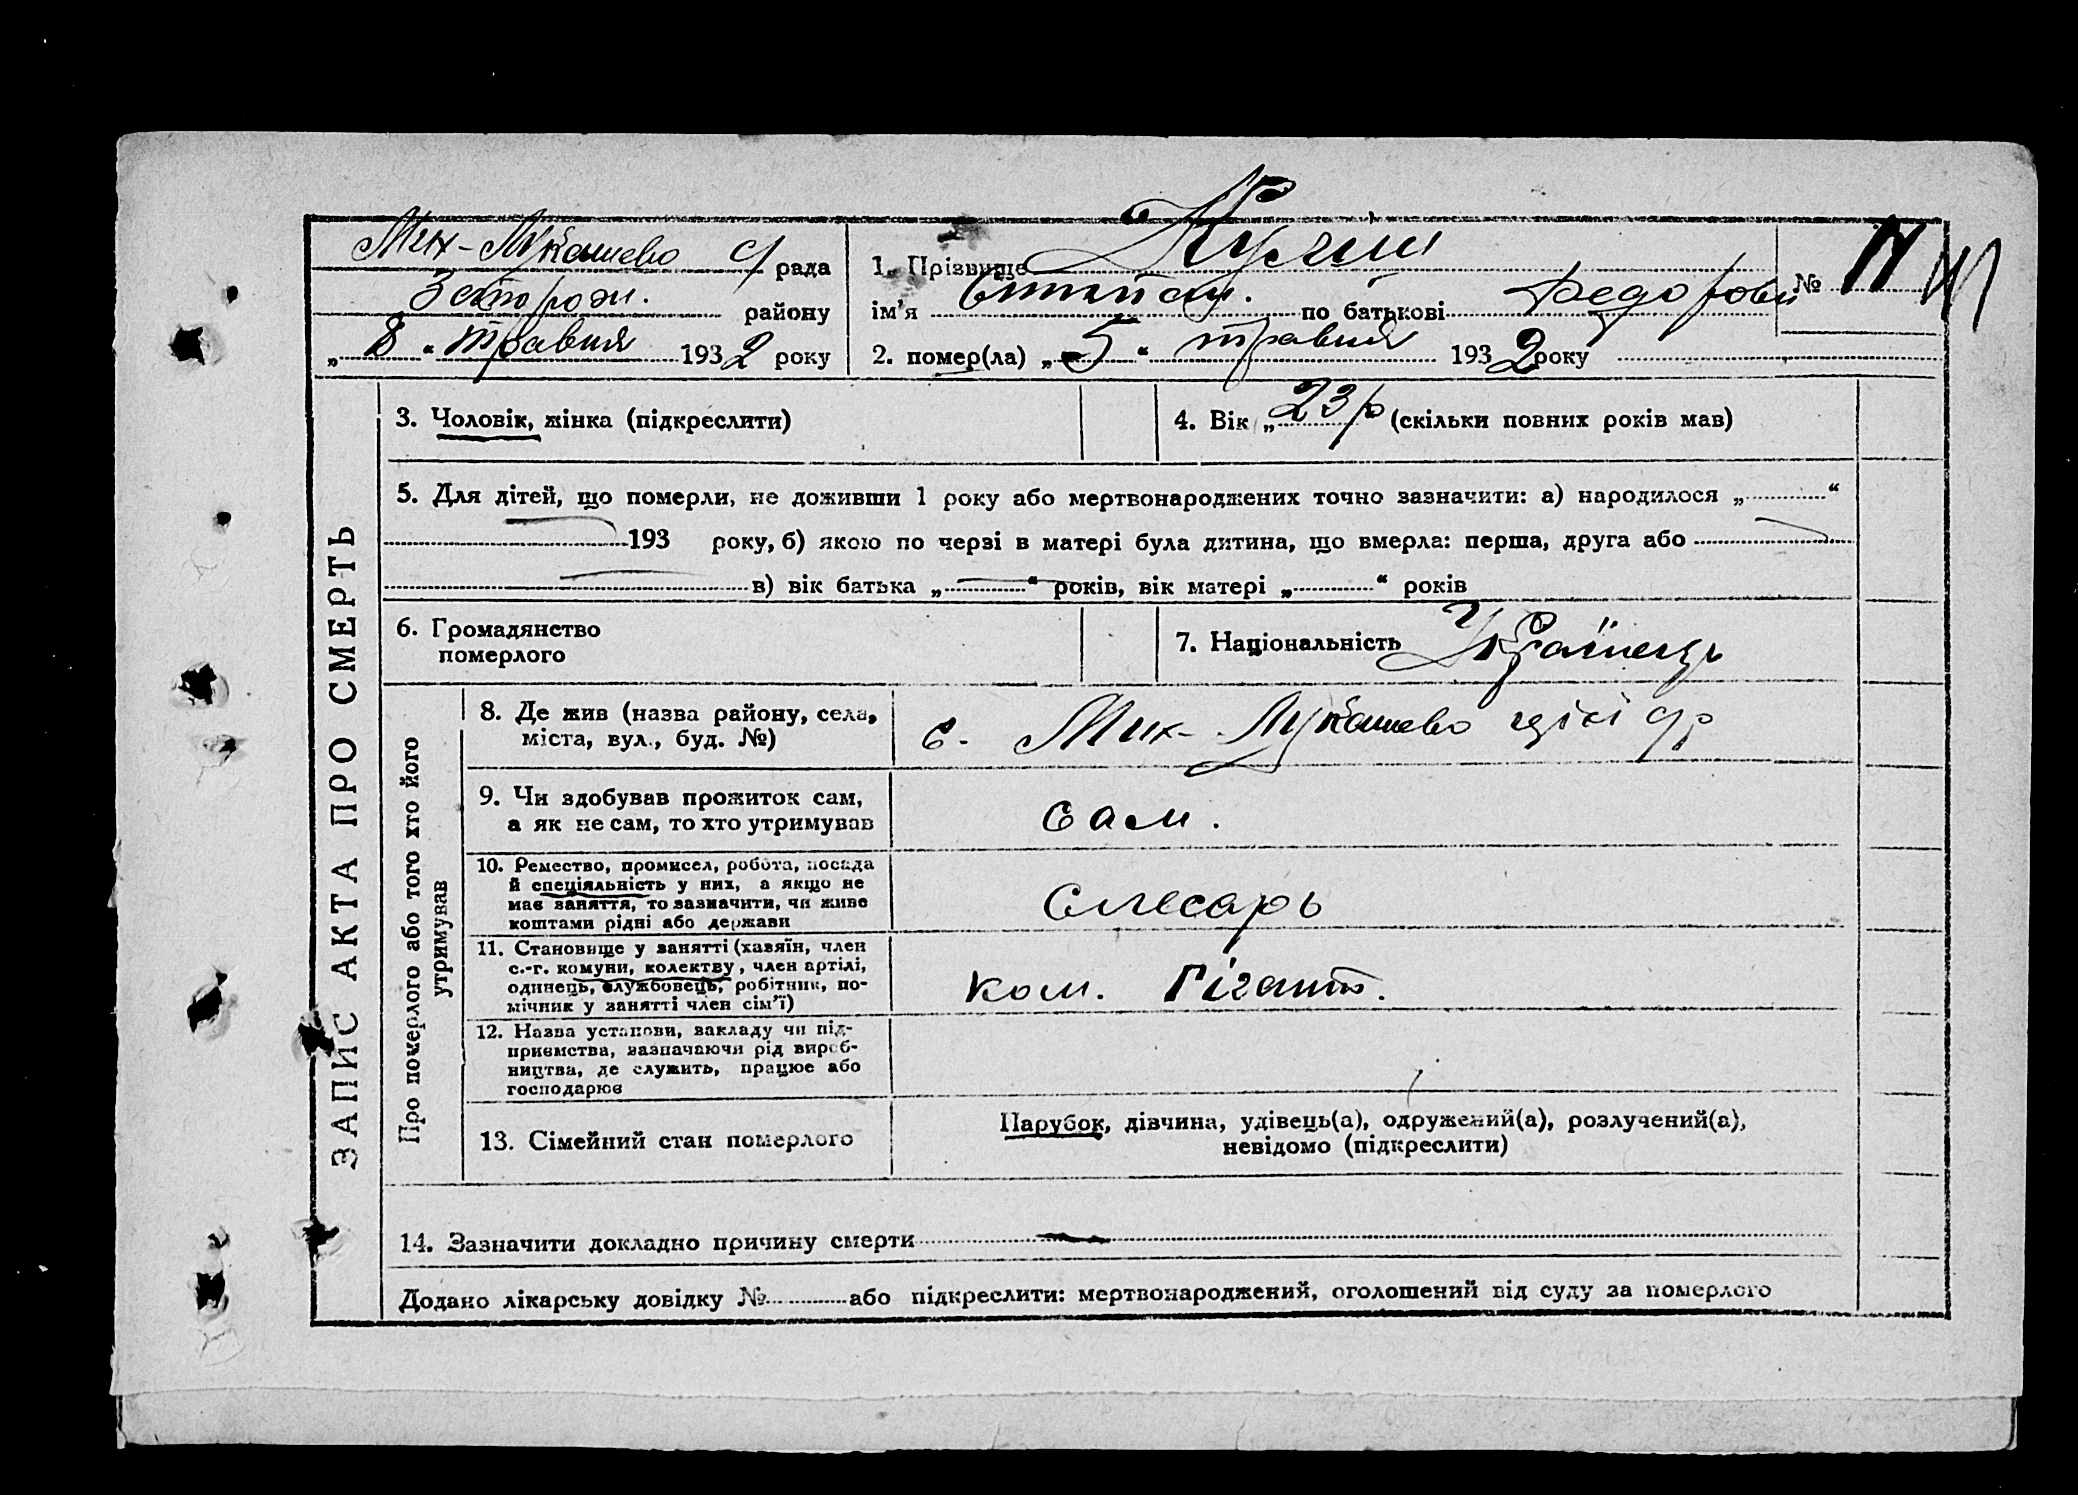 Мик-Лукашево с/ рада
Запорож. району
„ 8 “ травня 1932 року
1. Прізвище Кулiш
№ 11
ім'я Степан. по батькові Федорови
2. помер(ла) „ 5 “ травня 1932 року
ЗАПИС АКТА ПРО СМЕРТЬ
3. Чоловік, жінка (підкреслити)
4. Вік „ 23 р (скільки повних років мав)
5. Для дітей, що померли, не доживши 1 року або мертвонароджених точно зазначити: а) народилося „ “
193 року, б) якою по черзі в матері була дитина, що вмерла: перша, друга або
в) вік батька „ “ років, вік матері „ “ років
6. Громадянство
померлого
7. Національність Українець
Про померлого або того хто його
утримував
8. Де жив (назва району, села,
міста, вул., буд. №)
с. Мик-Лукашево цієї с/р
9. Чи здобував прожиток сам,
а як не сам, то хто утримував
сам.
10. Ремество, промисел, робота, посада
й спеціяльність у них, а якщо не
має заняття, то зазначити, чи живе
коштами рідні або держави
Слесарь
11. Становище у занятті (хазяїн, член
с.-г. комуни, колективу, член артілі,
одинець, службовець, робітник, по-
мічник у занятті член сім'ї)
ком. Гігант.
12. Назва установи, закладу чи під-
приємства, зазначаючи рід вироб-
ництва, де служить, працює або
господарює
13. Сімейний стан померлого
Парубок, дівчина, удівець(а), одружений(а), розлучений(а),
невідомо (підкреслити)
14. Зазначити докладно причину смерти
Додано лікарську довідку № або підкреслити: мертвонароджений, оголошений від суду за померлого